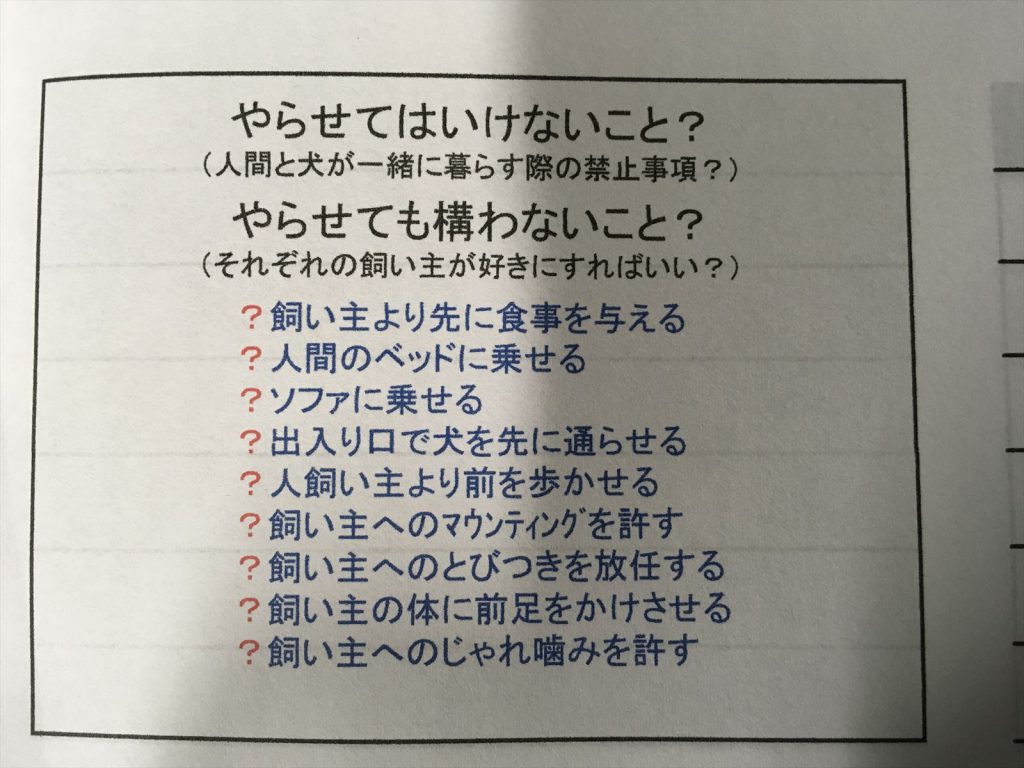 やらせてはいけないこと？
（人間と犬が一緒に暮らす際の禁止事項？）
やらせても構わないこと？
（それぞれの飼い主が好きにすればいい？）
？飼い主より先に食事を与える
？人間のベッドに乗せる
？ソファに乗せる
？出入り口で犬を先に通らせる
？人飼い主より前を歩かせる
？飼い主へのﾏｳﾝﾃｨﾝｸﾞを許す
？飼い主へのとびつきを放任する
？飼い主の体に前足をかけさせる
？飼い主へのじゃれ噛みを許す